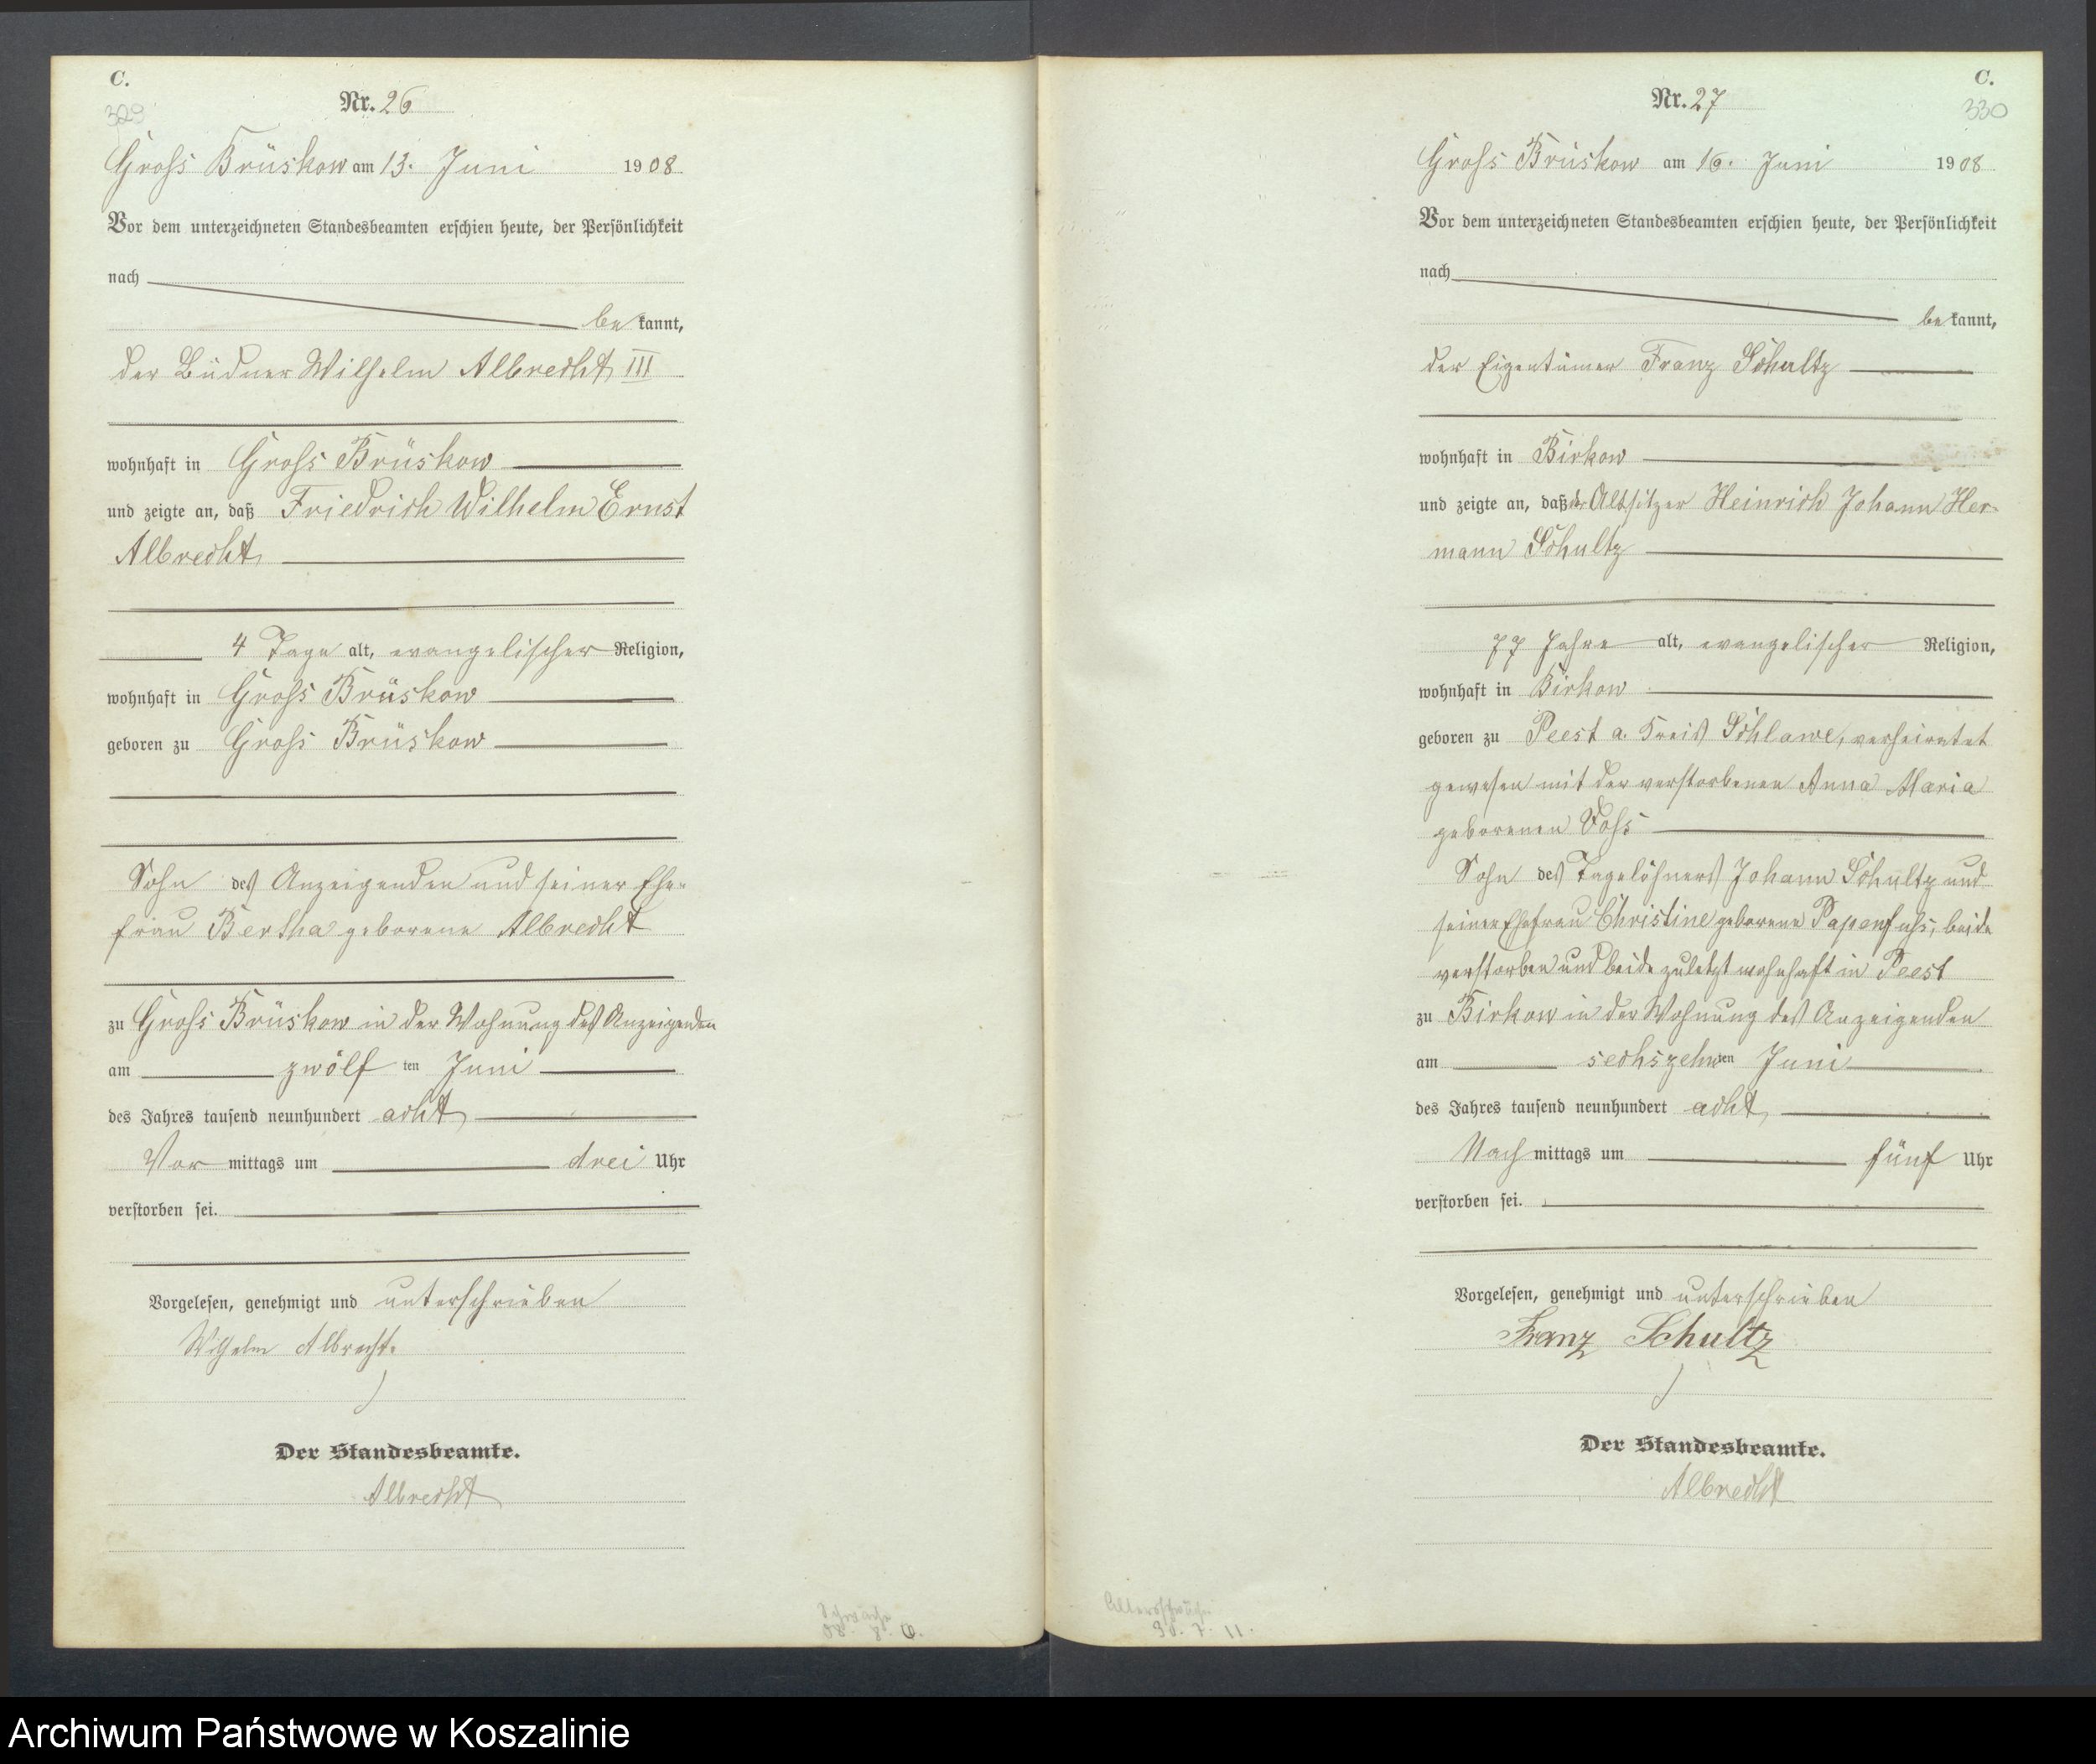 C.
329
Nr. 26
Groſs Brüskow am 13. Juni 1908
Vor dem unterzeichneten Standesbeamten erſchien heute, der Perſönlichkeit
nach
be kannt,
der Büdner Wilhelm Albrecht III
wohnhaft in Groſs Brüskow
und zeigte an, daß Friedrich Wilhelm Ernst
Albrecht
4 Tage alt, evangelischer Religion,
wohnhaft in Groſs Brüskow
geboren zu Groſs Brüskow
Sohn des Anzeigenden und seiner Ehe-
frau Bertha geborene Albrecht
zu Groſs Brüskow in der Wohnung des Anzeigenden
am zwölf ten Juni
des Jahres tauſend neunhundert acht
Vor mittags um drei Uhr
verſtorben ſei.
Vorgeleſen, genehmigt und unterschrieben
Wilhelm Albrecht.
Der Standesbeamte.
Albrecht
Schwäche
08. 8. 6.
C.
330
Nr. 27
Groſs Brüskow am 16. Juni 1908
Vor dem unterzeichneten Standesbeamten erſchien heute, der Perſönlichkeit
nach
be kannt,
der Eigentümer Franz Schultz
wohnhaft in Birkow
und zeigte an, daß der Altsitzer Heinrich Johann Her-
mann Schultz
77 Jahre alt, evangelischer Religion,
wohnhaft in Birkow
geboren zu Peest a. Kreis Schlawe, verheiratet
gewesen mit der verstorbenen Anna Maria
geborenen Voſs
Sohn des Tagelöhners Johann Schultz und
seiner Ehefrau Christine geborene Papenfuſs, beide
verstorben und beide zuletzt wohnhaft in Peest
zu Birkow in der Wohnung des Anzeigenden
am sechszehn ten Juni
des Jahres tauſend neunhundert acht
Nach mittags um fünf Uhr
verſtorben ſei.
Vorgeleſen, genehmigt und unterschrieben
Franz Schultz
Der Standesbeamte.
Albrecht
Altersschwäche
30. 7. 11.
Archiwum Państwowe w Koszalinie